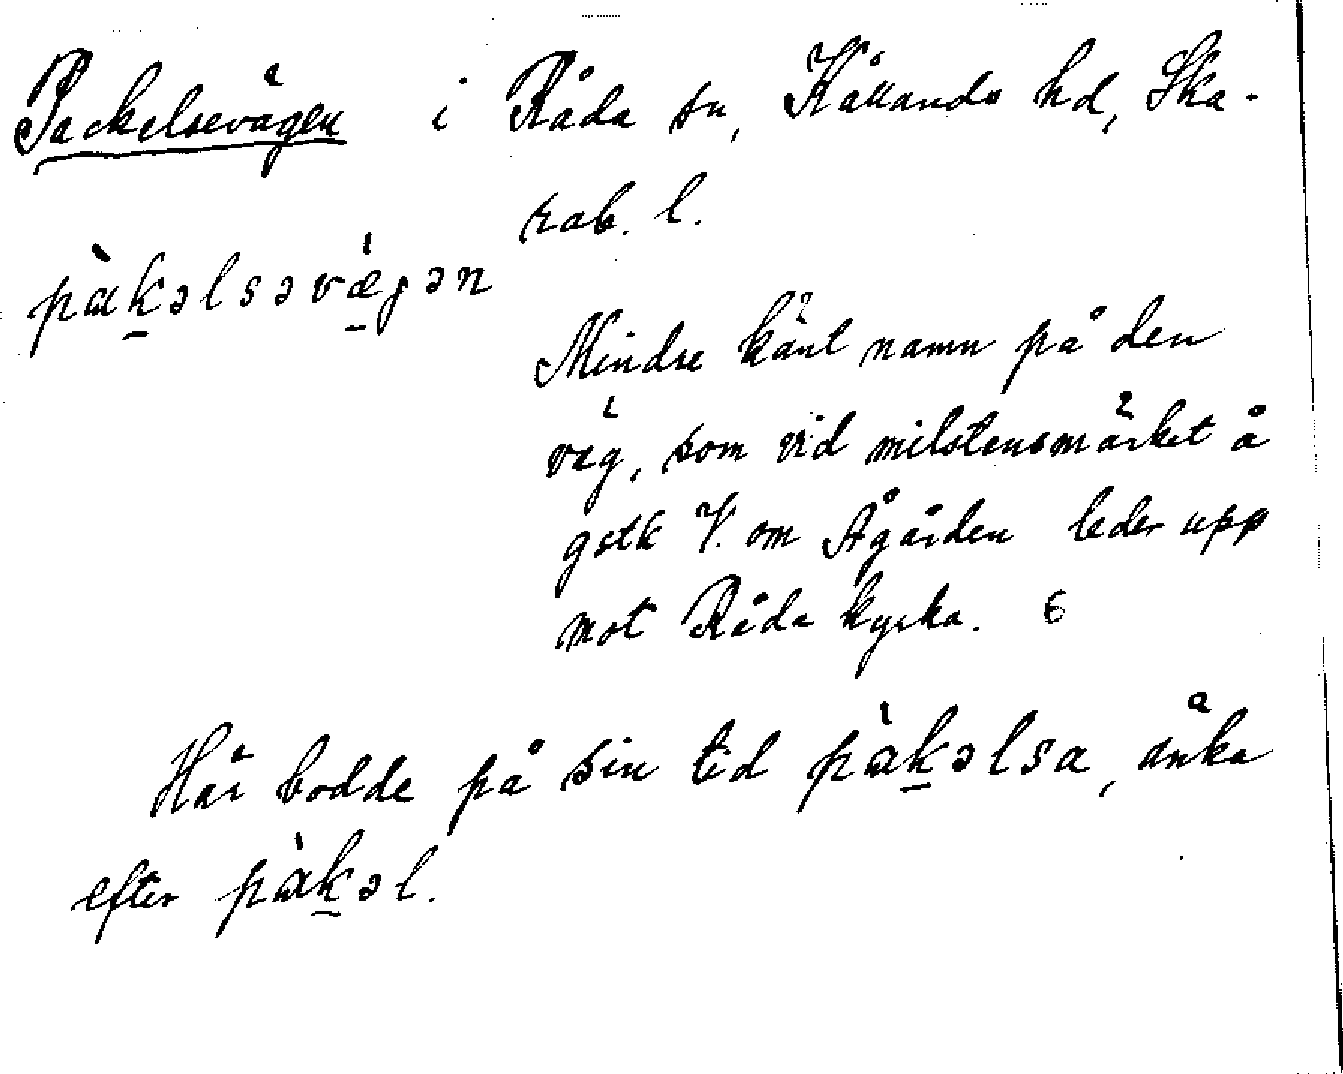 Packelsevägen i Råda sn, Kållands hd, Ska-
rab. l.
pàk̠əlsəvǽ̠gən
Mindre känt namn på den
väg, som vid milstensmärket å
gstk V. om Ågården leder upp
mot Råda kyrka. 6
Här bodde på sin tid pàk̠əlsa, änka
efter pàk̠əl.